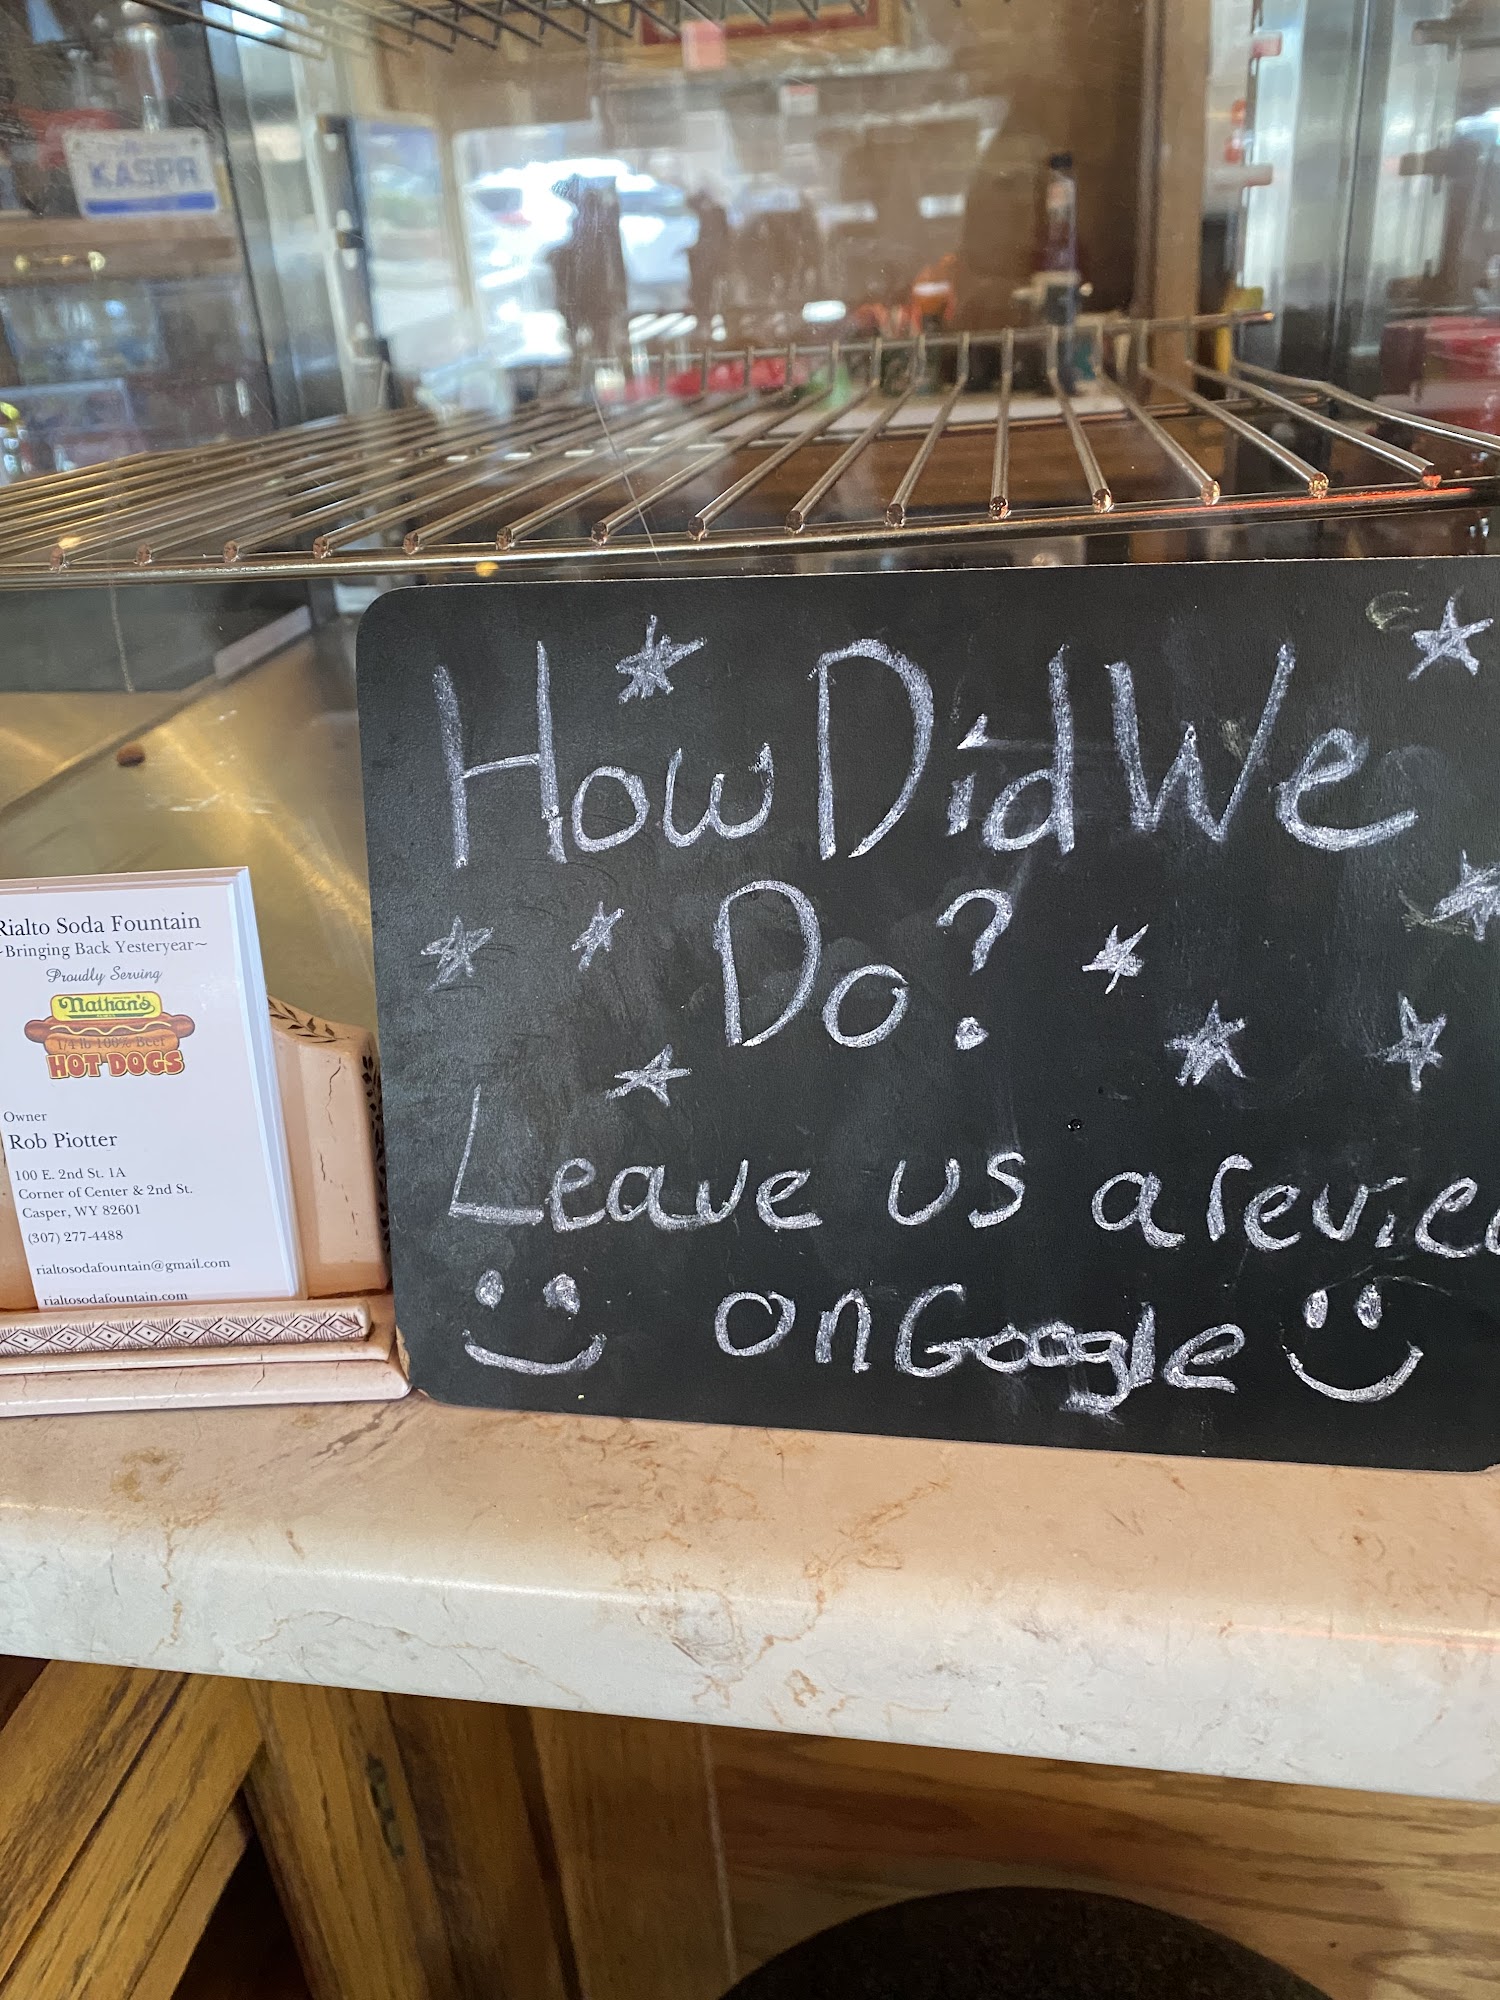 KASPR
How Did We
Do?
Leave us a revie
on Google
Rialto Soda Fountain
~Bringing Back Yesteryear~
Proudly Serving
Nathan's
1/4 lb 100% Beef
HOT DOGS
Owner
Rob Piotter
100 E. 2nd St. 1A
Corner of Center & 2nd St.
Casper, WY 82601
(307) 277-4488
rialtosodafountain@gmail.com
rialtosodafountain.com